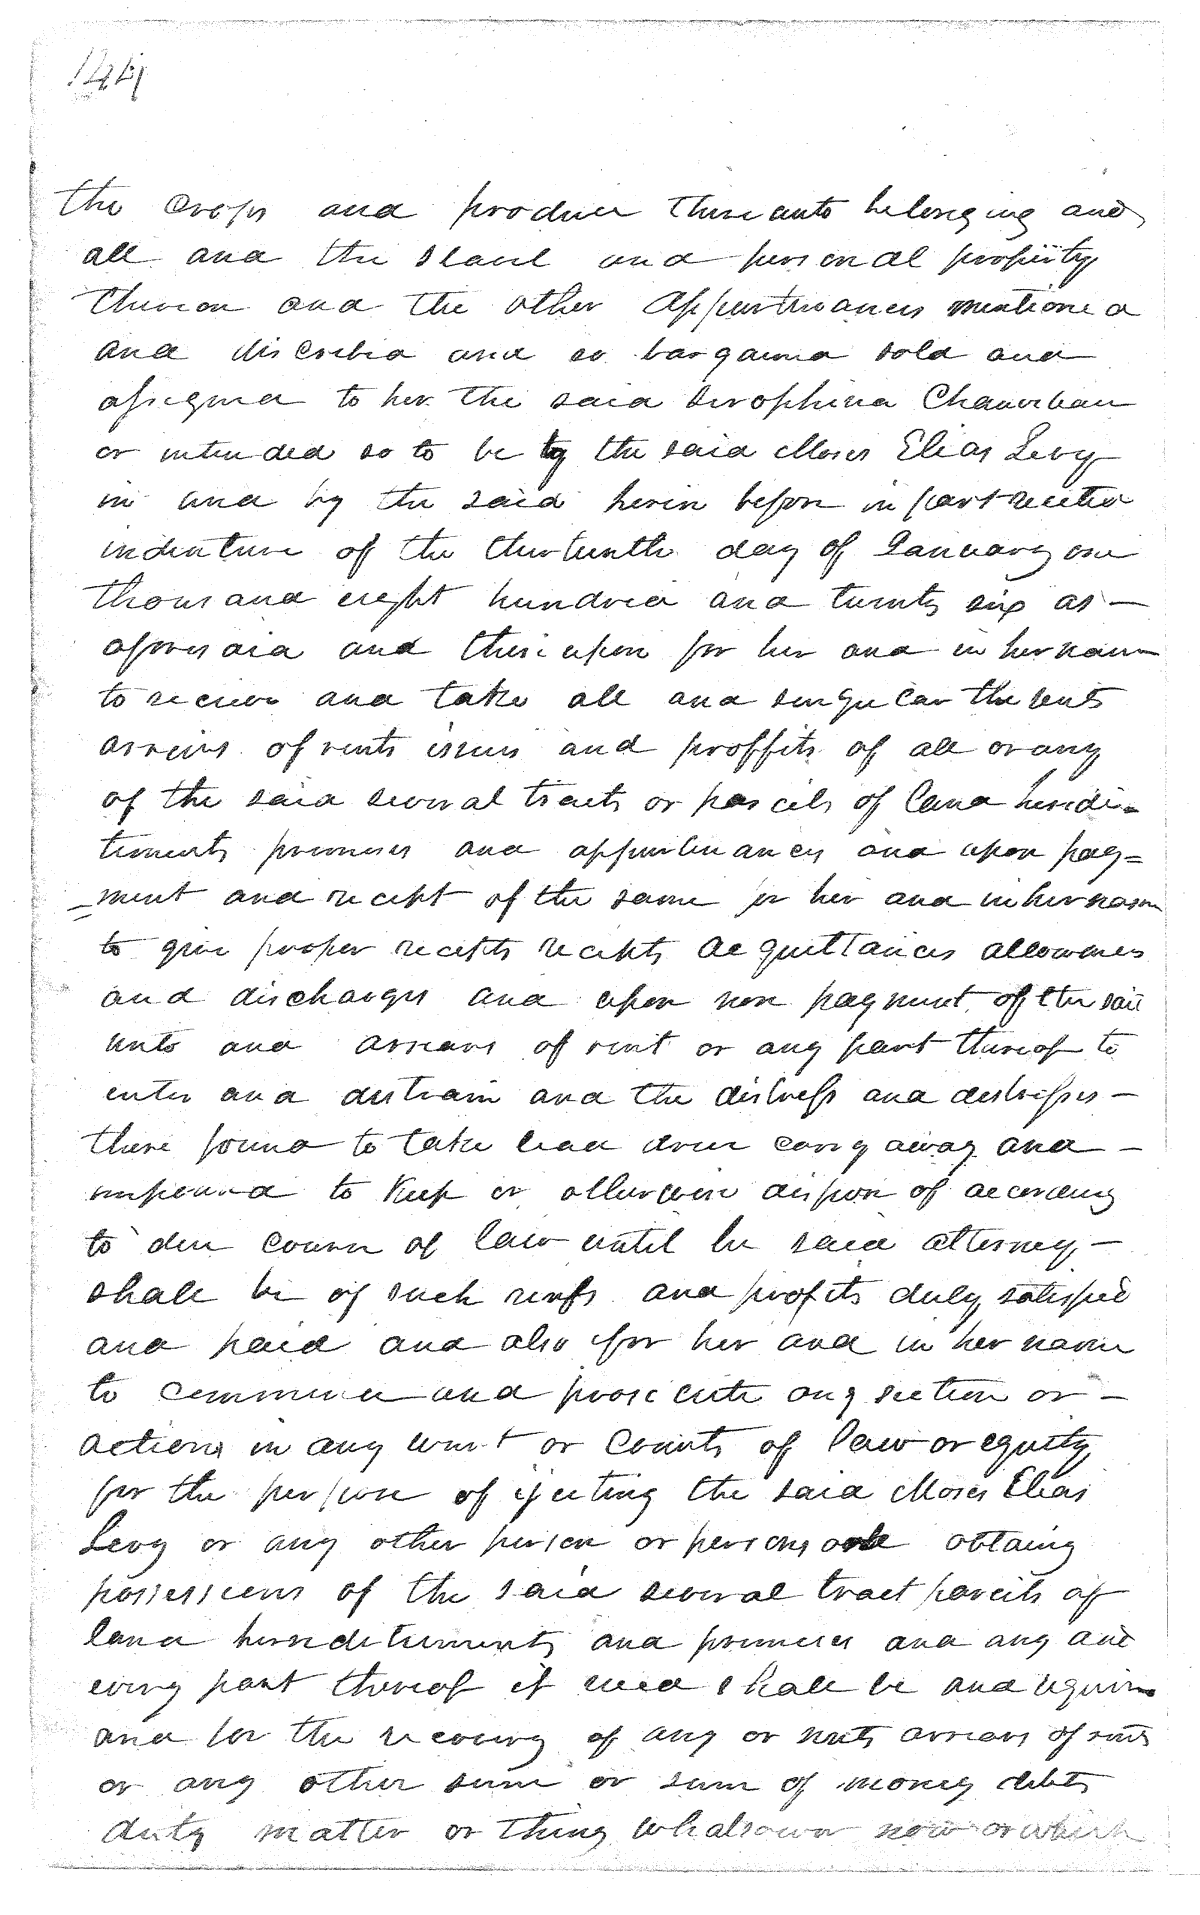 the crops and produce thereunto belonging and
all and the slaves and personal property
thereon and the other appurtenances mentioned
and discribed and so bargained sold and
assigned to her the said Serophina Chauviteau
or intended so to be by the said Moses Elias Levy
in and by the said herein before in part recited
indenture of the thirteenth day of January one
thousand eight hundred and twenty six as —
aforesaid and thereupon for her and in her name
to receive and take all and singular the rents
arrears of rents issues and proffits of all or any
of the said several tracts or parcels of land heredi=
tements premises and appurtenances and upon pay=
=ment and receipt of the same for her and in her name
to give proper receipts receipts acquittances allowances
and discharges and upon non payment of the said
rents and arrears of rent or any part thereof to
enter and distrain and the distress and distresses —
there found to take lead drive carry away and —
impound to keep or otherwise dispose of according
to due course of law until he said attorney —
shall be of such rents and profits duly satisfied
and paid and also for her and in her name
to commence and prosecute any section or —
actions in any court or Courts of law or equity
for the purpose of ejecting the said Moses Elias
Levy or any other person or persons obtaing
possessions of the said several tract parcels of
land heredetements and premises and any and
every part thereof if need shall be and require
and for the recovery of any or rents arrears of rents
or any other sum or sum of money debts
duty matter or thing whatsoever now or which